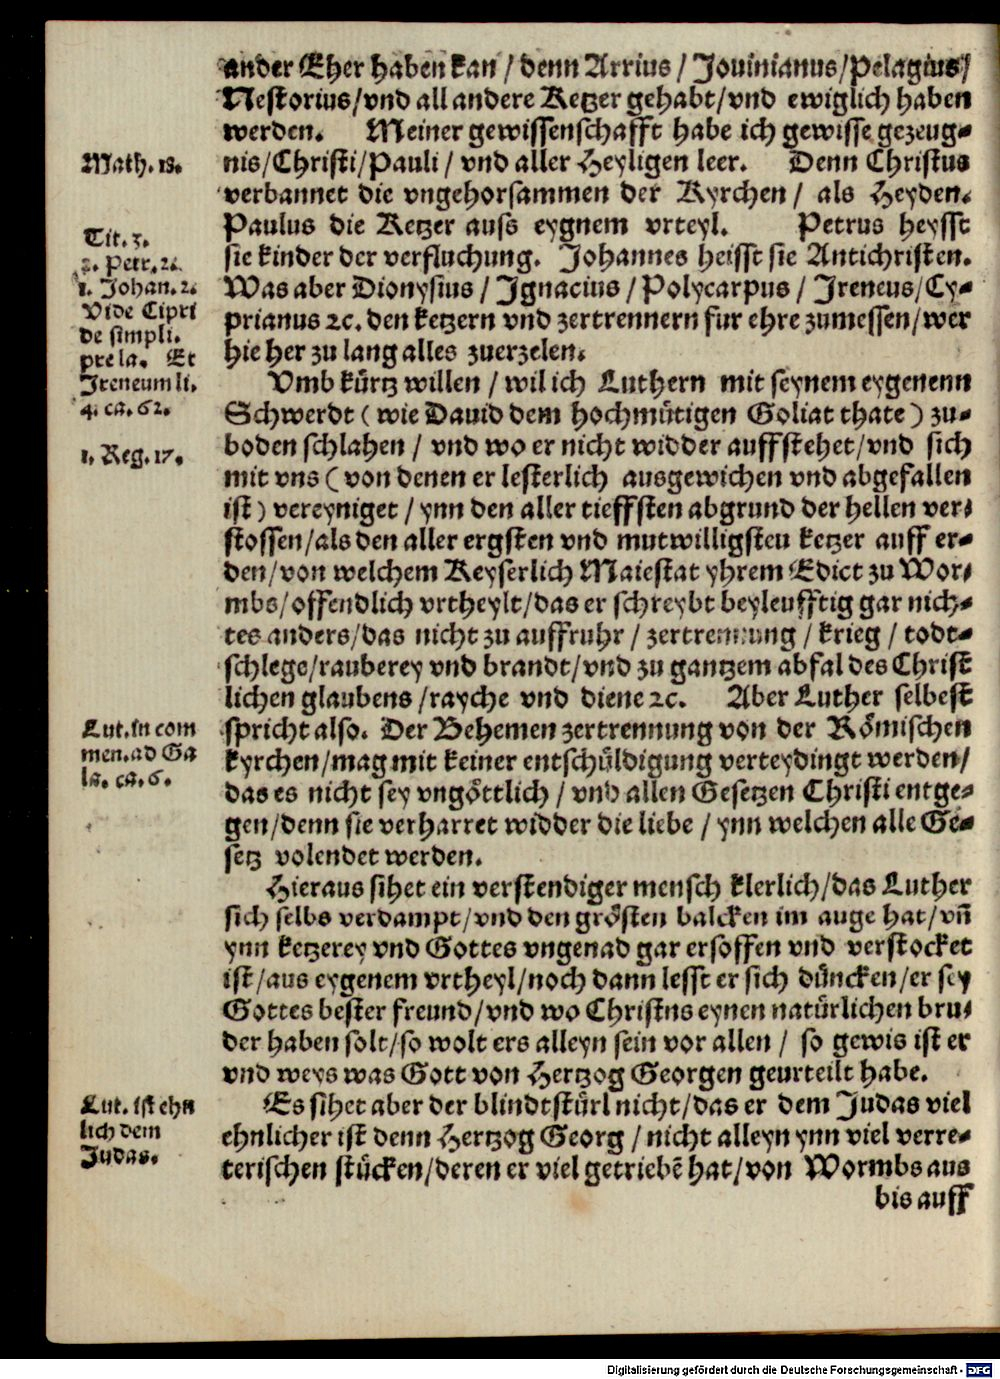 ander Eher haben kan / denn Arrius / Jouinianus / Pelagius /
Nestorius / vnd all andere Ketzer gehabt / vnd ewiglich haben
werden. Meiner gewissenschafft habe ich gewisse gezeug-
Math. 18.
nis / Christi / Pauli / vnd aller Heyligen leer. Denn Christus
verbannet die vngehorsammen der Kyrchen / als Heyden.
Paulus die Ketzer auss eygnem vrteyl. Petrus heysst
Tit. 3.
2. Petr. 2.
sie kinder der verfluchung. Johannes heisst sie Antichristen.
1. Johan. 2.
Was aber Dionysius / Ignacius / Polycarpus / Ireneus / Cy-
Vide Cipri
de simpli.
prianus ꝛc. den ketzern vnd zertrennern fur ehre zumessen / wer
prela. Et
hie her zu lang alles zuerzelen.
Ireneum li.
4. ca. 62.
Vmb kürtz willen / wil ich Luthern mit seynem eygenenn
Schwerdt ( wie Dauid dem hochmütigen Goliat thate ) zu-
1. Reg. 17.
boden schlahen / vnd wo er nicht widder auffstehet / vnd sich
mit vns ( von denen er lesterlich ausgewichen vnd abgefallen
ist ) vereyniget / ynn den aller tieffsten abgrund der hellen ver-
stossen / als den aller ergsten vnd mutwilligsten ketzer auff er-
den / von welchem Keyserlich Maiestat yhrem Edict zu Wor-
mbs / offendlich vrtheylt / das er schreybt beyleufftig gar nich-
tes anders / das nicht zu auffruhr / zertrennung / krieg / todt-
schlege / rauberey vnd brandt / vnd zu gantzem abfal des Christ
lichen glaubens / rayche vnd diene ꝛc. Aber Luther selbest
Lut. in com
men. ad Ga
la. ca. 6.
spricht also. Der Behemen zertrennung von der Römischen
kyrchen / mag mit keiner entschüldigung verteydingt werden /
das es nicht sey vngöttlich / vnd allen Gesetzen Christi entge-
gen / denn sie verharret widder die liebe / ynn welchen alle Ge-
setz volendet werden.
Hieraus sihet ein verstendiger mensch klerlich / das Luther
sich selbs verdampt / vnd den grösten balcken im auge hat / vñ
ynn ketzerey vnd Gottes vngenad gar ersoffen vnd verstocket
ist / aus eygenem vrtheyl / noch dann lesst er sich düncken / er sey
Gottes bester freund / vnd wo Christns eynen natürlichen bru-
der haben solt / so wolt ers alleyn sein vor allen / so gewis ist er
vnd weys was Gott von Hertzog Georgen geurteilt habe.
Lut. ist ehn
lich dem
Judas.
Es sihet aber der blindt stürl nicht / das er dem Judas viel
ehnlicher ist denn Hertzog Georg / nicht alleyn ynn viel verre-
terischen stücken / deren er viel getriebē hat / von Wormbs aus
bis auff
Digitalisierung gefördert durch die Deutsche Forschungsgemeinschaft - DFG